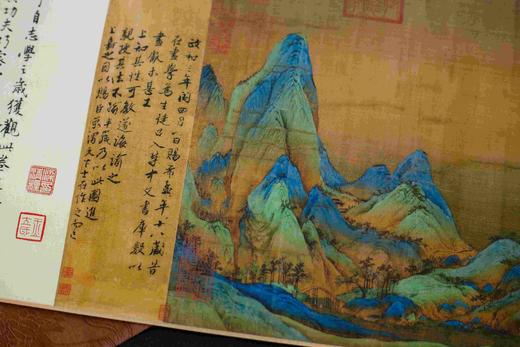 政和三年閏四月一日賜希孟年十八歲昔
在畫學為生徒召入禁中文書庫數以
畫獻未甚工
上知其性可教遂誨諭之
親授其法不踰半歲乃以此圖進
上嘉之因以賜臣京謂天下士在作之而已
自志學之歲獲觀此卷
功夫巧密